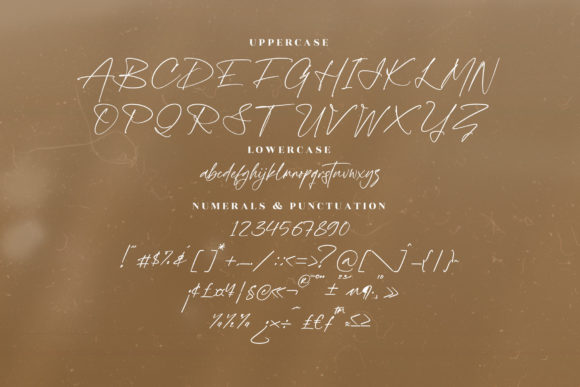 UPPERCASE
ABCDEFGHIJKLMN
OPQRSTUVWXYZ
LOWERCASE
abcdefghijklmnopqrstuvwxyz
NUMERALS & PUNCTUATION
1234567890
!"#$%&'[]*+,-./:;<=>?@[\]^_{|}~
¢£¤¥|§@«¬®¯°±²³µ¶·¹º»
¼½¾¿×÷£€ƒ™≈≤≥